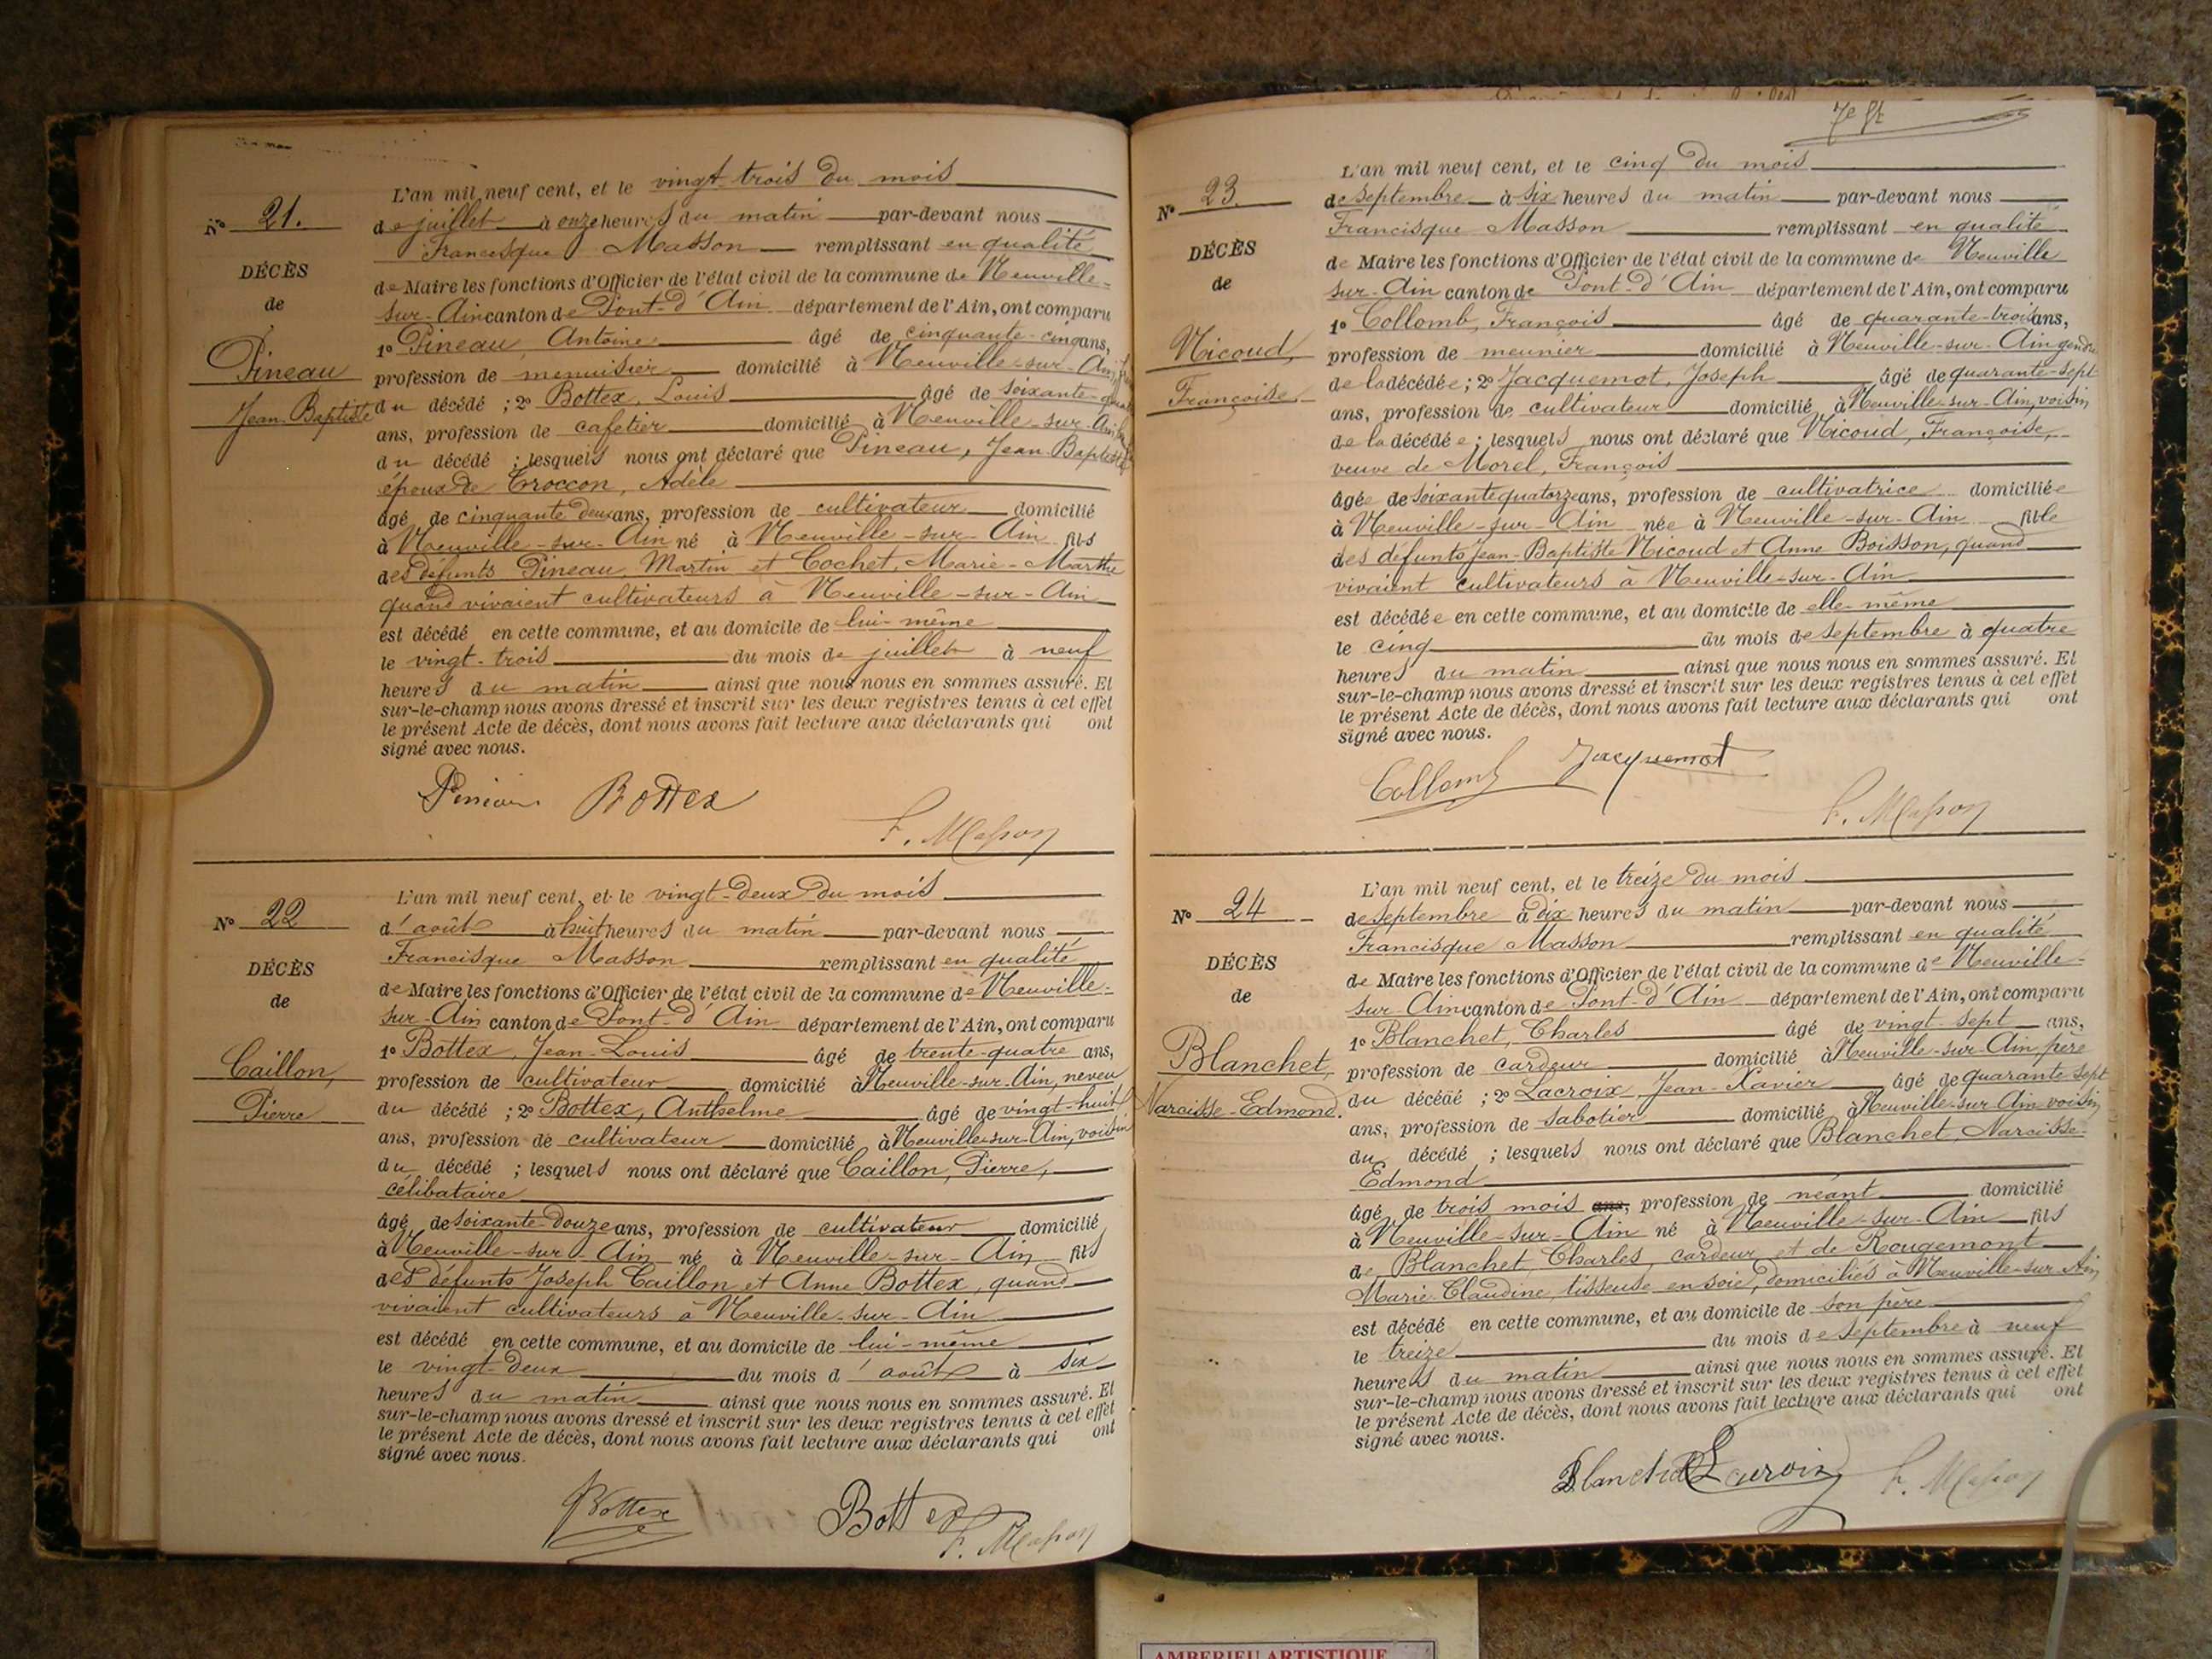 N° 21.
DÉCÈS
de
Pineau
Jean-Baptiste
L'an mil neuf cent, et le vingt-trois du mois
de juillet à onze heures du matin par-devant nous
Francisque Masson remplissant en qualité
de Maire les fonctions d'Officier de l'état civil de la commune de Neuville-
sur-Ain canton de Pont-d'Ain département de l'Ain, ont comparu
1° Pineau, Antoine âgé de cinquante-cinq ans,
profession de menuisier domicilié à Neuville-sur-Ain,
du décédé ; 2° Bottex, Louis âgé de soixante-
ans, profession de cafetier domicilié à Neuville-sur-Ain,
du décédé ; lesquels nous ont déclaré que Pineau, Jean-Baptiste
époux de Croccon, Adèle
âgé de cinquante deux ans, profession de cultivateur domicilié
à Neuville-sur-Ain né à Neuville-sur-Ain fils
des défunts Pineau, Martin et Cochet, Marie-Marthe
quand vivaient cultivateurs à Neuville-sur-Ain
est décédé en cette commune, et au domicile de lui-même
le vingt-trois du mois de juillet à neuf
heures du matin ainsi que nous nous en sommes assuré. Et
sur-le-champ nous avons dressé et inscrit sur les deux registres tenus à cet effet
le présent Acte de décès, dont nous avons fait lecture aux déclarants qui ont
signé avec nous.
Pineau Bottex
F. Masson
N° 22
DÉCÈS
de
Caillon,
Pierre
L'an mil neuf cent, et le vingt-deux du mois
d'août à huit heures du matin par-devant nous
Francisque Masson remplissant en qualité
de Maire les fonctions d'Officier de l'état civil de la commune de Neuville-
sur-Ain canton de Pont-d'Ain département de l'Ain, ont comparu
1° Bottex, Jean-Louis âgé de trente-quatre ans,
profession de cultivateur domicilié à Neuville-sur-Ain, neveu
du décédé ; 2° Bottex, Anthelme âgé de vingt-huit
ans, profession de cultivateur domicilié à Neuville-sur-Ain, voisin
du décédé ; lesquels nous ont déclaré que Caillon, Pierre,
célibataire
âgé de soixante-douze ans, profession de cultivateur domicilié
à Neuville-sur-Ain né à Neuville-sur-Ain fils
des défunts Joseph Caillon et Anne Bottex, quand
vivaient cultivateurs à Neuville-sur-Ain
est décédé en cette commune, et au domicile de lui-même
le vingt-deux du mois d'août à six
heures du matin ainsi que nous nous en sommes assuré. Et
sur-le-champ nous avons dressé et inscrit sur les deux registres tenus à cet effet
le présent Acte de décès, dont nous avons fait lecture aux déclarants qui ont
signé avec nous.
Bottex Bottex
F. Masson
7e ft
N° 23.
DÉCÈS
de
Nicoud,
Françoise
L'an mil neuf cent, et le cinq du mois
de septembre à six heures du matin par-devant nous
Francisque Masson remplissant en qualité
de Maire les fonctions d'Officier de l'état civil de la commune de Neuville
sur-Ain canton de Pont-d'Ain département de l'Ain, ont comparu
1° Collomb, François âgé de quarante-trois ans,
profession de meunier domicilié à Neuville-sur-Ain gendre
de la décédée ; 2° Jacquemot, Joseph âgé de quarante-sept
ans, profession de cultivateur domicilié à Neuville-sur-Ain, voisin
de la décédée ; lesquels nous ont déclaré que Nicoud, Françoise,
veuve de Morel, François
âgée de soixante quatorze ans, profession de cultivatrice domiciliée
à Neuville-sur-Ain née à Neuville-sur-Ain fille
des défunts Jean-Baptiste Nicoud et Anne Boisson, quand
vivaient cultivateurs à Neuville-sur-Ain
est décédée en cette commune, et au domicile de elle-même
le cinq du mois de septembre à quatre
heures du matin ainsi que nous nous en sommes assuré. Et
sur-le-champ nous avons dressé et inscrit sur les deux registres tenus à cet effet
le présent Acte de décès, dont nous avons fait lecture aux déclarants qui ont
signé avec nous.
Collomb Jacquemot
F. Masson
N° 24
DÉCÈS
de
Blanchet,
Narcisse-Edmond.
L'an mil neuf cent, et le treize du mois
de septembre à dix heures du matin par-devant nous
Francisque Masson remplissant en qualité
de Maire les fonctions d'Officier de l'état civil de la commune de Neuville-
sur-Ain canton de Pont-d'Ain département de l'Ain, ont comparu
1° Blanchet, Charles âgé de vingt-sept ans,
profession de cardeur domicilié à Neuville-sur-Ain, père
du décédé ; 2° Lacroix, Jean-Xavier âgé de quarante-sept
ans, profession de sabotier domicilié à Neuville-sur-Ain voisin
du décédé ; lesquels nous ont déclaré que Blanchet, Narcisse-
Edmond
âgé de trois mois ans, profession de néant domicilié
à Neuville-sur-Ain né à Neuville-sur-Ain fils
de Blanchet, Charles, cardeur et de Rougemont
Marie-Claudine, tisseuse en soie, domiciliés à Neuville-sur-Ain
est décédé en cette commune, et au domicile de son père
le treize du mois de septembre à neuf
heures du matin ainsi que nous nous en sommes assuré. Et
sur-le-champ nous avons dressé et inscrit sur les deux registres tenus à cet effet
le présent Acte de décès, dont nous avons fait lecture aux déclarants qui ont
signé avec nous.
Blanchet Lacroix F. Masson
AMBERIEU ARTISTIQUE